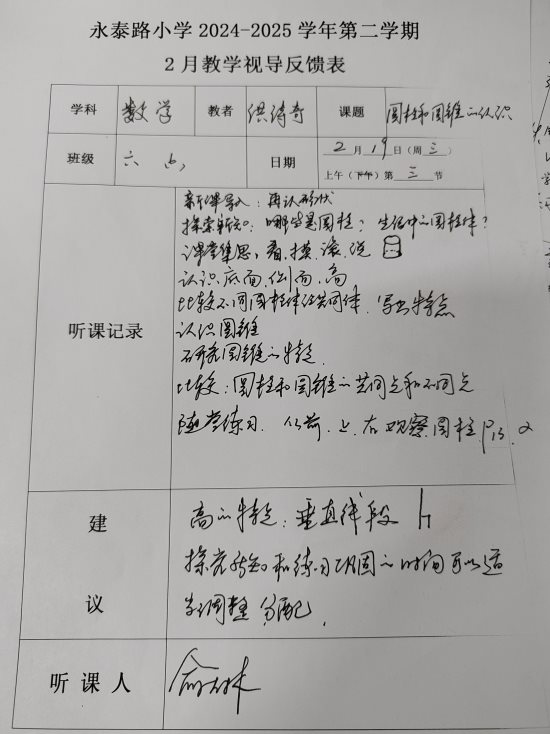 永泰路小学 2024-2025 学年第二学期
2 月教学视导反馈表
学科 数学 教者 课题 圆柱和圆锥的认识
班级 六 日期 2月19日(周三)
上午(下午)第三节
听课记录
新课导入:再认形状
探索新知:哪些是圆柱?生活中的圆柱体?
课堂集思,看、摸、滚、说
认识底面,侧面,高
比较不同圆柱体 共同体 写出特点
认识圆锥
研究圆锥的特点
比较:圆柱和圆锥的共同点和不同点
随堂练习. 从前、上、右观察圆柱 P13. 2
建议
高的特点:垂直线段 h
探究新知和练习巩固的时间可以适
当调整分配.
听课人